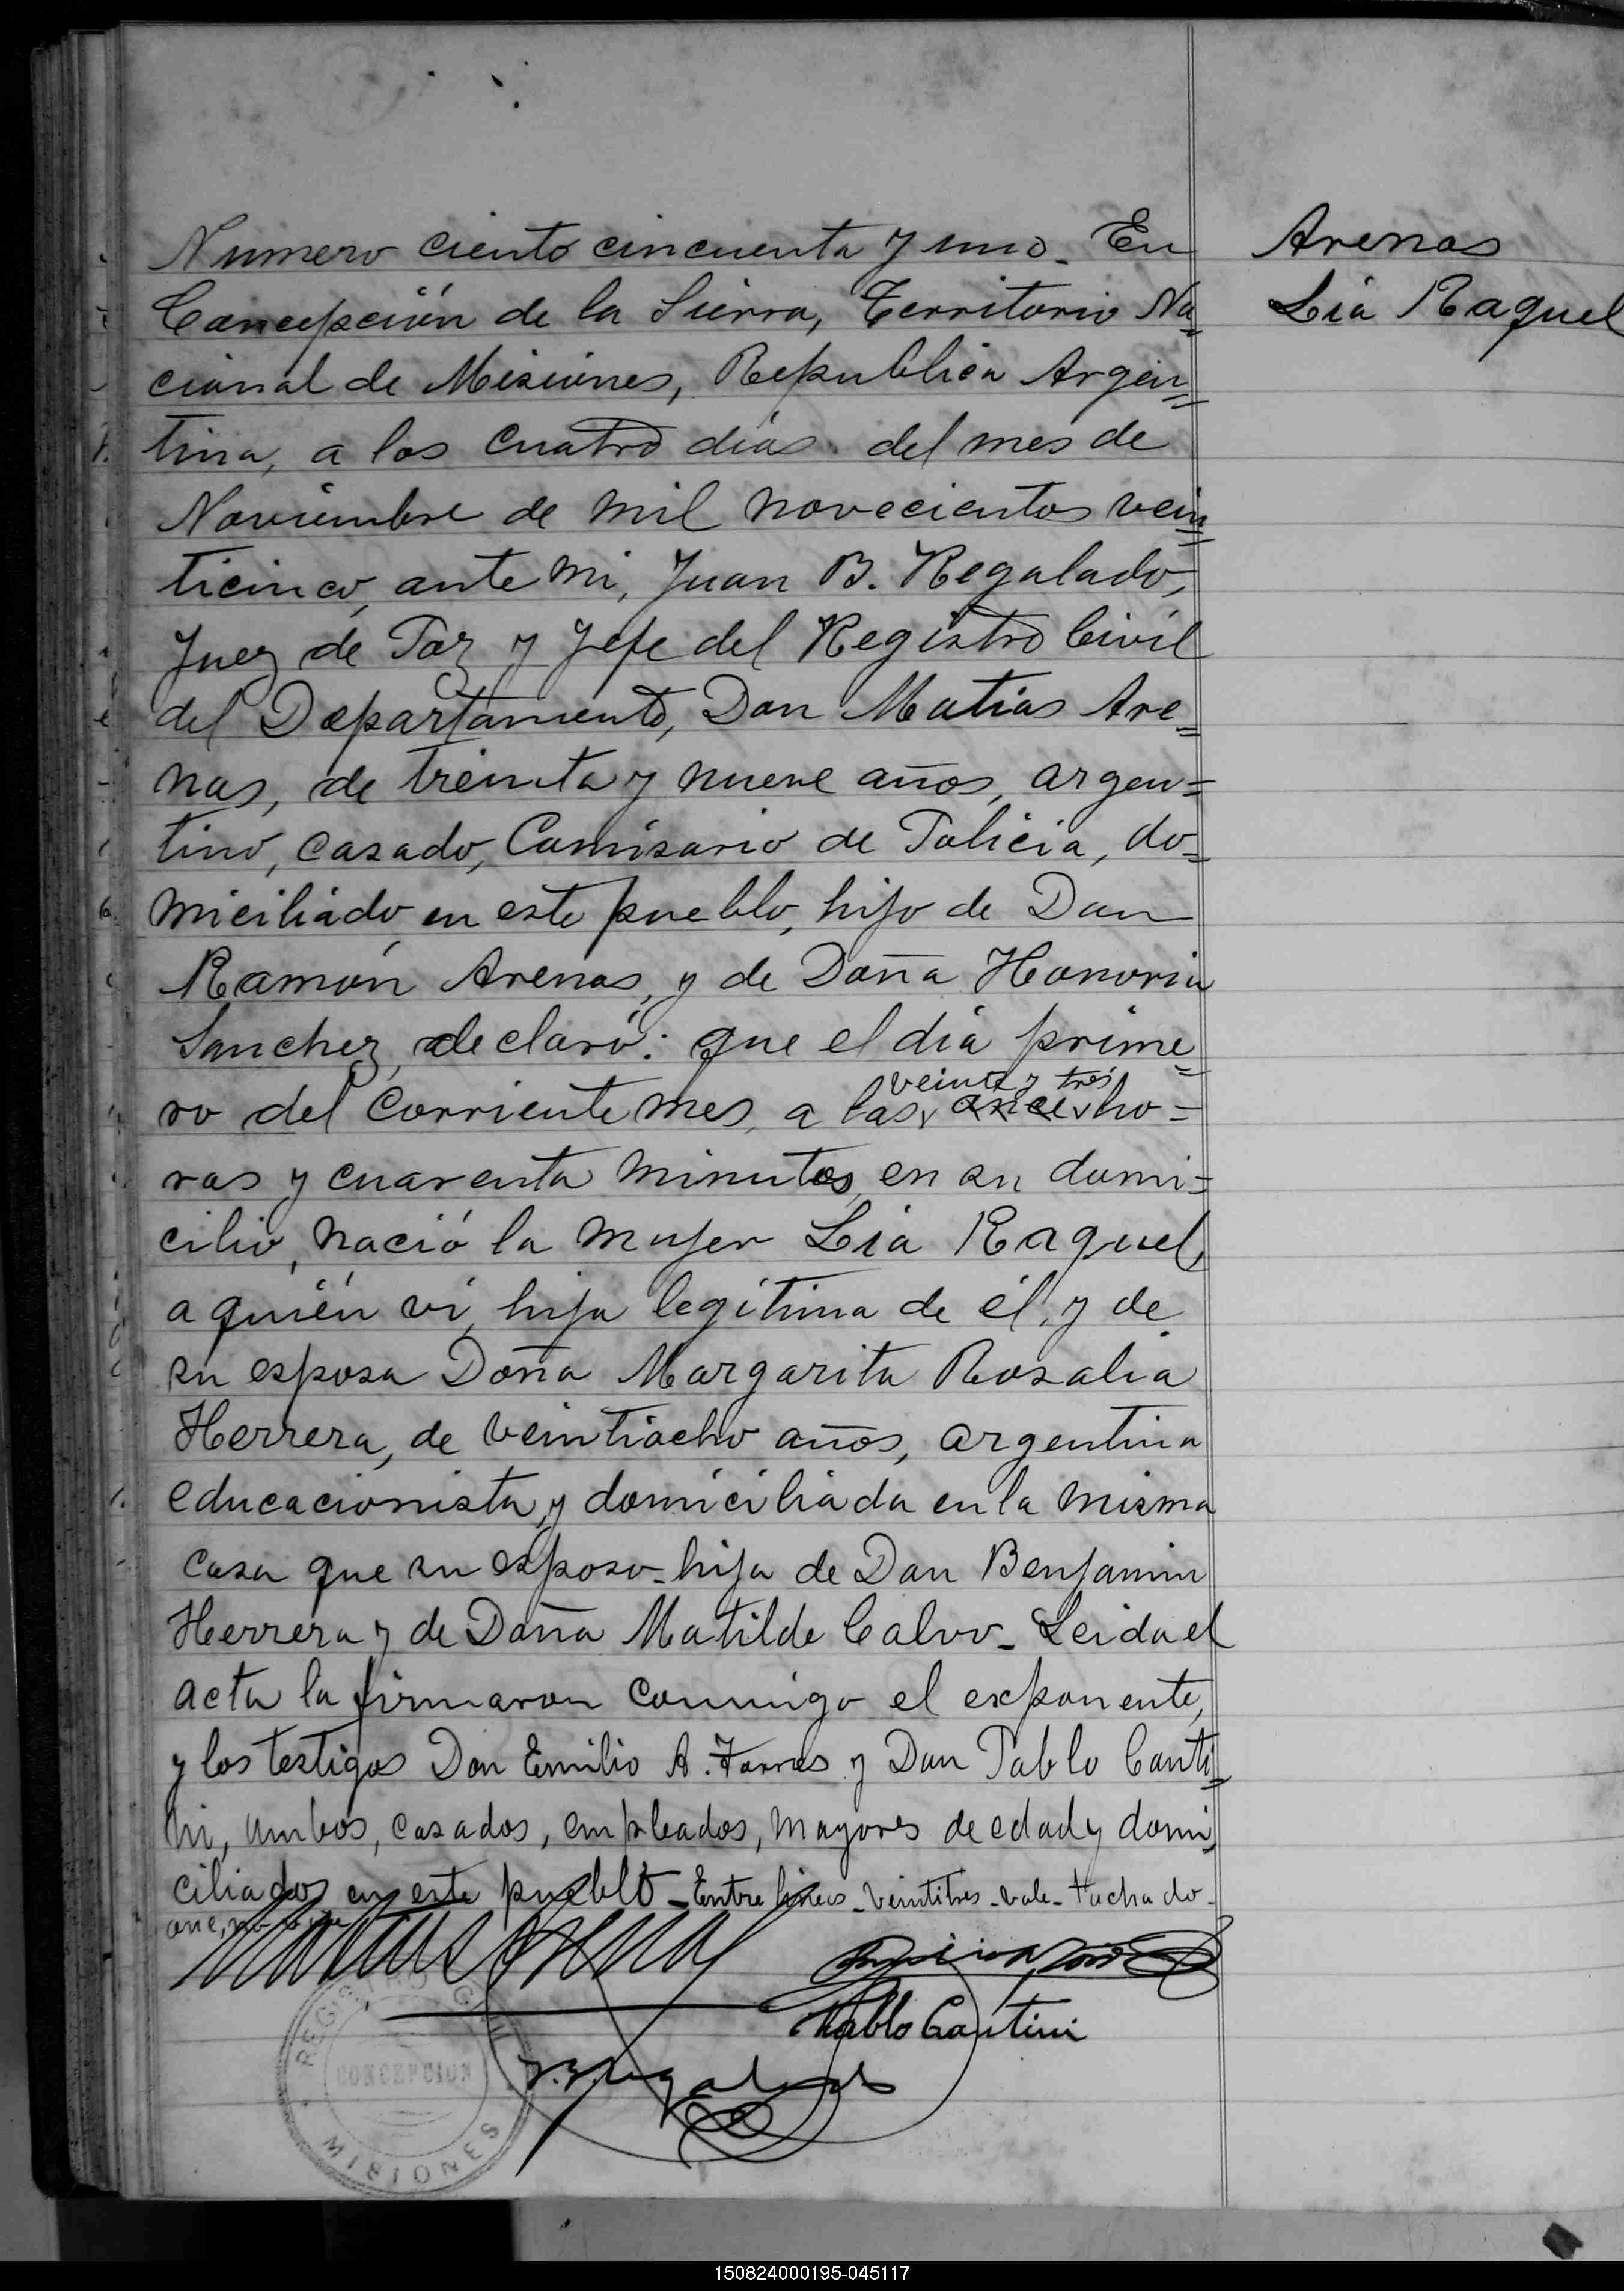 Numero ciento cincuenta y uno_ En
Concepción de la Sierra, Territorio Na=
cional de Misiones, Republica Argen=
tina, a los cuatro días del mes de
Noviembre de mil novecientos vein=
ticinco, ante mi, Juan B. Regalado,
Juez de Paz y Jefe del Registro Civil
del Departamento, Don Matias Are=
nas, de treinta y nueve años, argen=
tino, casado, Comisario de Policia, do=
miciliado en este pueblo, hijo de Don
Ramón Arenas, y de Doña Honoria
Sanchez, declaró: que el día prime=
veinte y tres
ro del corriente mes, a las once ho=
ras y cuarenta minutos, en su domi=
cilio, nació la mujer Lia Raquel,
a quién vi, hija legítima de él, y de
su esposa Doña Margarita Rosalia
Herrera, de veintiocho años, argentina
educacionista, y domiciliada en la misma
casa que su esposo_hija de Don Benjamin
Herrera y de Doña Matilde Calvo_ Leida el
acta la firmaron conmigo el exponente,
y los testigos Don Emilio A. Torres y Don Pablo Canti=
ni, ambos, casados, empleados, mayores de edad y domi
ciliados en este pueblo_Entre lineas_veintitres_vale_tachado_
once, no vale
Matias Arenas
Pablo Cantini
J.B. Regalado
REGISTRO CIVIL
CONCEPCION
MISIONES
Arenas
Lia Raquel
150824000195-045117